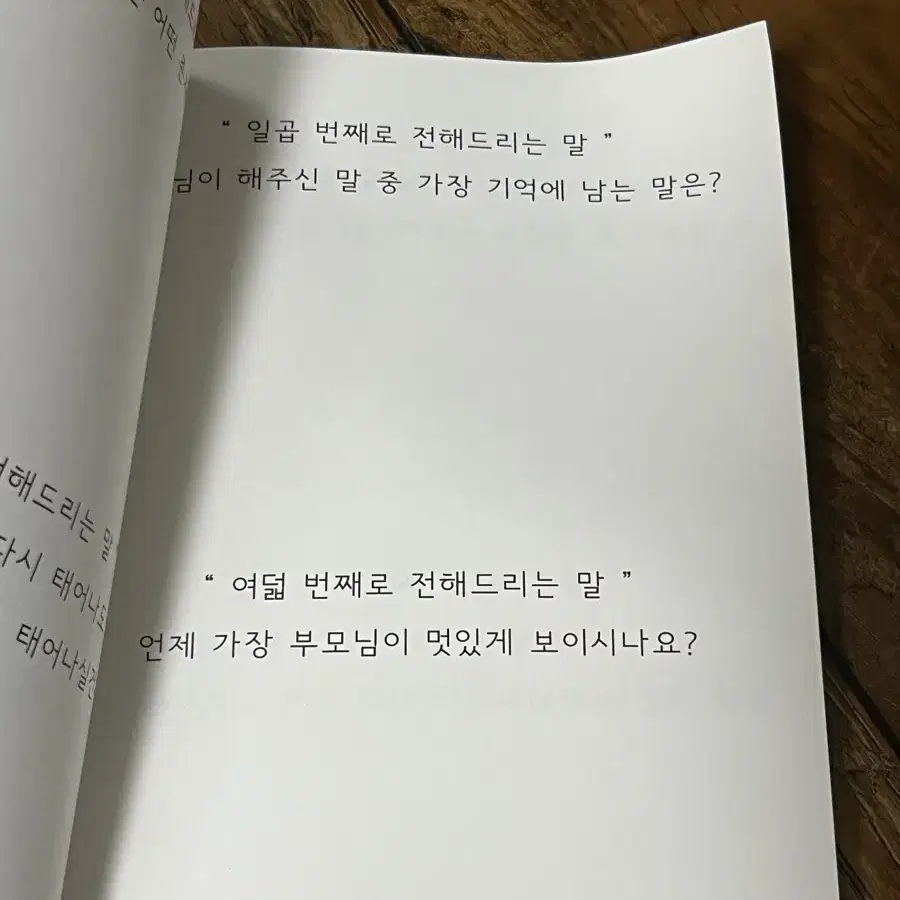 어떤
해드리는 말
다시 태어나도
태어나실건
“ 일곱 번째로 전해드리는 말 ”
님이 해주신 말 중 가장 기억에 남는 말은?
“ 여덟 번째로 전해드리는 말 ”
언제 가장 부모님이 멋있게 보이시나요?